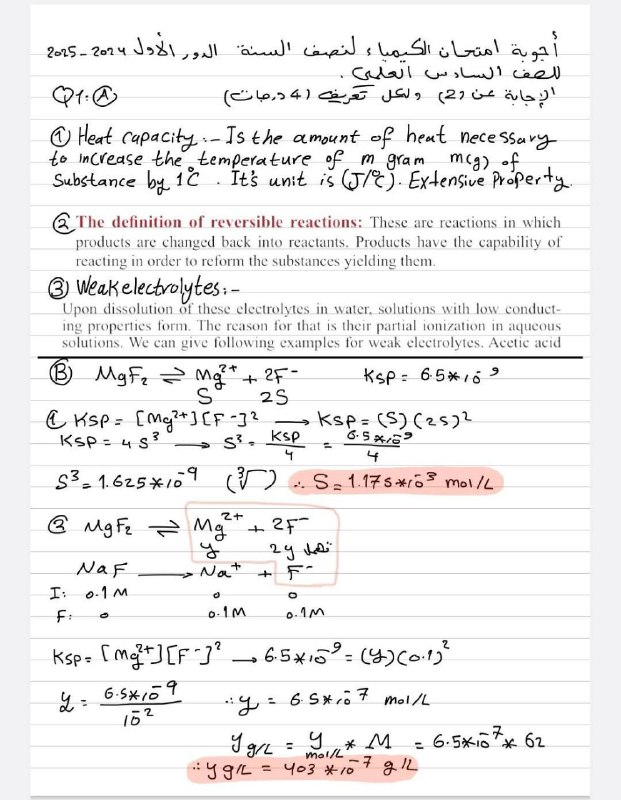 أجوبة امتحان الكيمياء لنصف السنة الدور الأول 2024 - 2025
للصف السادس العلمي.
Q1: (A) الإجابة عن (2) ولكل تعريف (4 درجات)
① Heat capacity:- Is the amount of heat necessary
to increase the temperature of m gram m(g) of
Substance by 1°C . It's unit is (J/°C). Extensive Property.
② The definition of reversible reactions: These are reactions in which
products are changed back into reactants. Products have the capability of
reacting in order to reform the substances yielding them.
③ Weak electrolytes:-
Upon dissolution of these electrolytes in water, solutions with low conduct-
ing properties form. The reason for that is their partial ionization in aqueous
solutions. We can give following examples for weak electrolytes. Acetic acid
(B) MgF₂ ⇌ Mg²⁺ + 2F⁻ Ksp = 6.5*10⁻⁹
S 2S
① Ksp = [Mg²⁺][F⁻]² → Ksp = (S)(2S)²
Ksp = 4S³ → S³ = Ksp/4 = 6.5*10⁻⁹/4
S³ = 1.625*10⁻⁹ (∛) ∴ S = 1.175*10⁻³ mol/L
② MgF₂ ⇌ Mg²⁺ + 2F⁻
y 2y تهمل
NaF → Na⁺ + F⁻
I: 0.1M 0 0
F: 0 0.1M 0.1M
Ksp = [Mg²⁺][F⁻]² → 6.5*10⁻⁹ = (y)(0.1)²
y = 6.5*10⁻⁹/10⁻² ∴ y = 6.5*10⁻⁷ mol/L
y g/L = y mol/L * M = 6.5*10⁻⁷ * 62
∴ y g/L = 403 *10⁻⁷ g/L